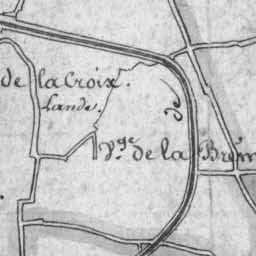 de la Croix.
Lande.
V.ge de la Brun
de